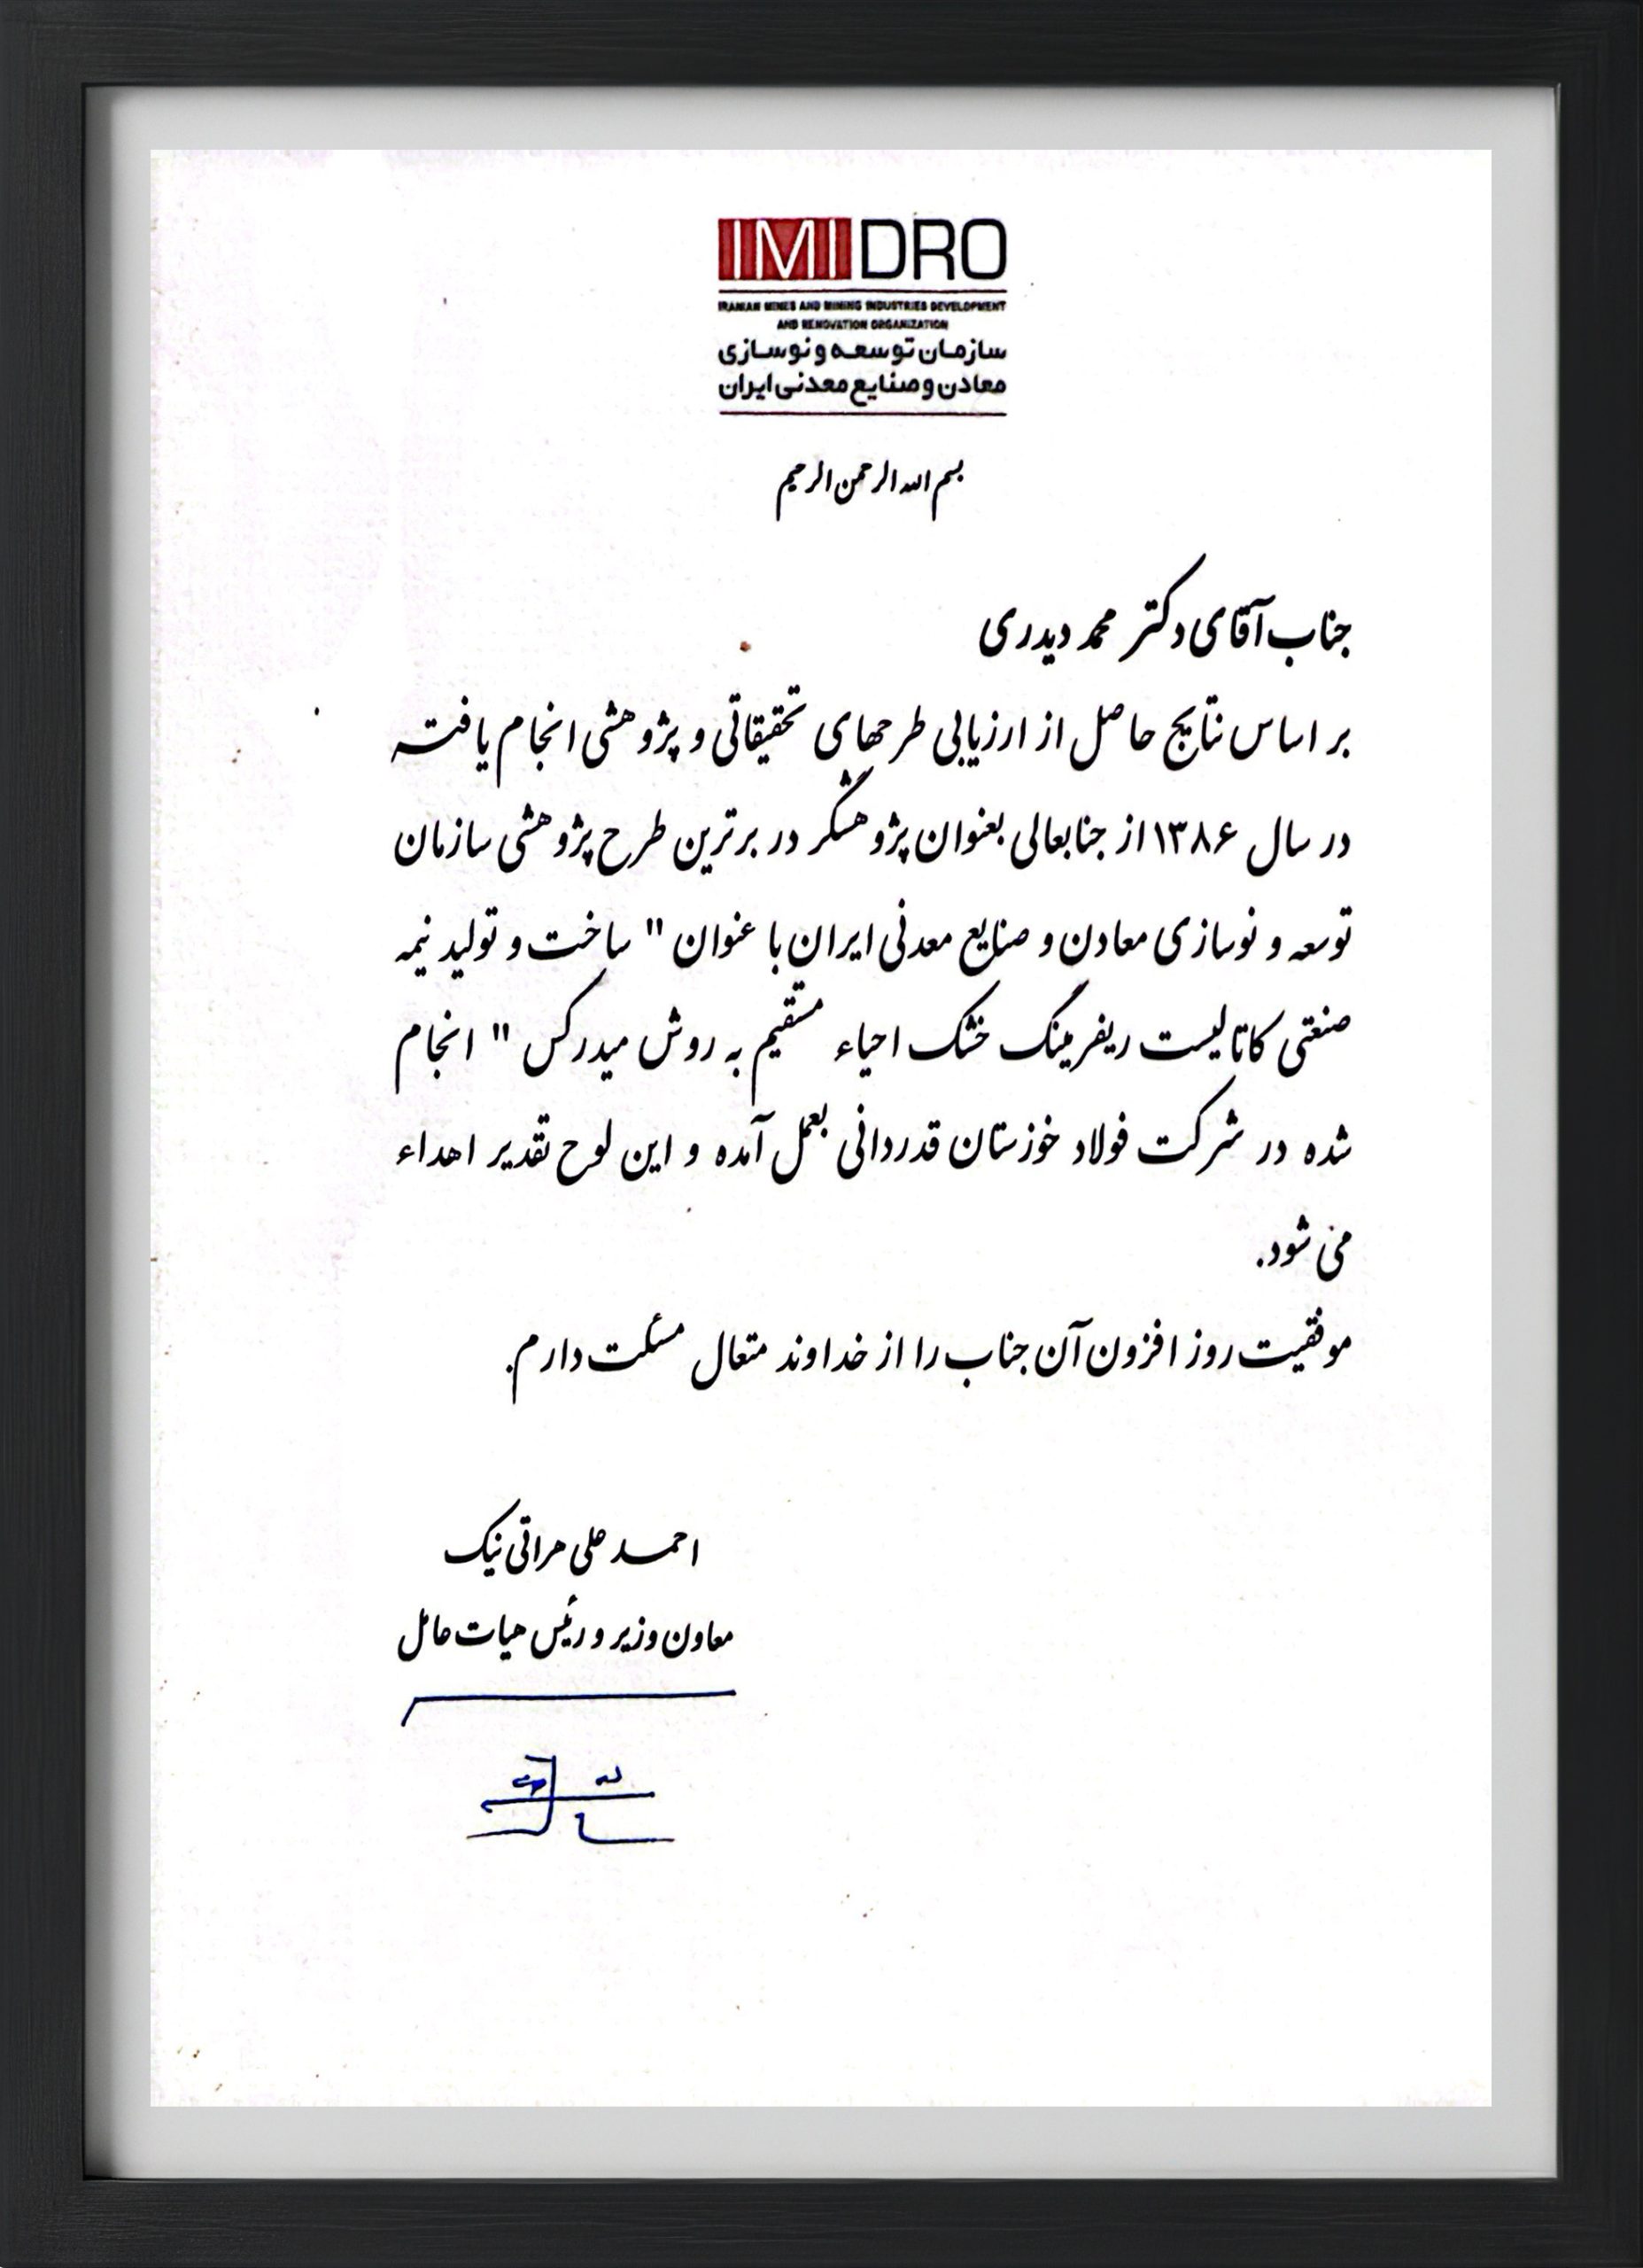 IMIDRO
IRANIAN MINES AND MINING INDUSTRIES DEVELOPMENT
AND RENOVATION ORGANIZATION
سازمان توسعه و نوسازی
معادن و صنایع معدنی ایران
بسم الله الرحمن الرحیم
جناب آقای دکتر محمد دیدری
بر اساس نتایج حاصل از ارزیابی طرحهای تحقیقاتی و پژوهشی انجام یافته
در سال ۱۳۸۶ از جنابعالی بعنوان پژوهشگر در برترین طرح پژوهشی سازمان
توسعه و نوسازی معادن و صنایع معدنی ایران با عنوان " ساخت و تولید نیمه
صنعتی کاتالیست ریفرمینگ خشک احیاء مستقیم به روش میدرکس " انجام
شده در شرکت فولاد خوزستان قدردانی بعمل آمده و این لوح تقدیر اهداء
می شود.
موفقیت روز افزون آن جناب را از خداوند متعال مسئلت دارم.
احمد علی هراتی نیک
معاون وزیر و رئیس هیات عامل